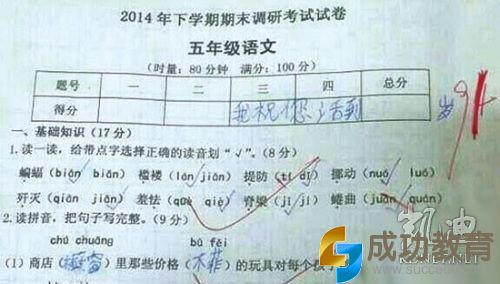 2014年下学期期末调研考试试卷
五年级语文
(时量：80分钟 满分：100分)
题号 一 二 三 四 总分
得分 我祝您活到 91 岁
一、基础知识(17分)
1.读一读，给带点字选择正确的读音划“√”。(8分)
蝙蝠(biān biān) 褴褛(lán jiān) 提防(tí dī) 挪动(nuó luó)
歼灭(qiān jiān) 羞怯(què qiè) 脊梁(jǐ jí) 蜷曲(juǎn quán)
2.读拼音，把句子写完整。(9分)
chú chuāng bù fěi
(1)商店(橱窗)里那些价格(不菲)的玩具对每个孩子
凯迪
KDNET.NET
成功教育